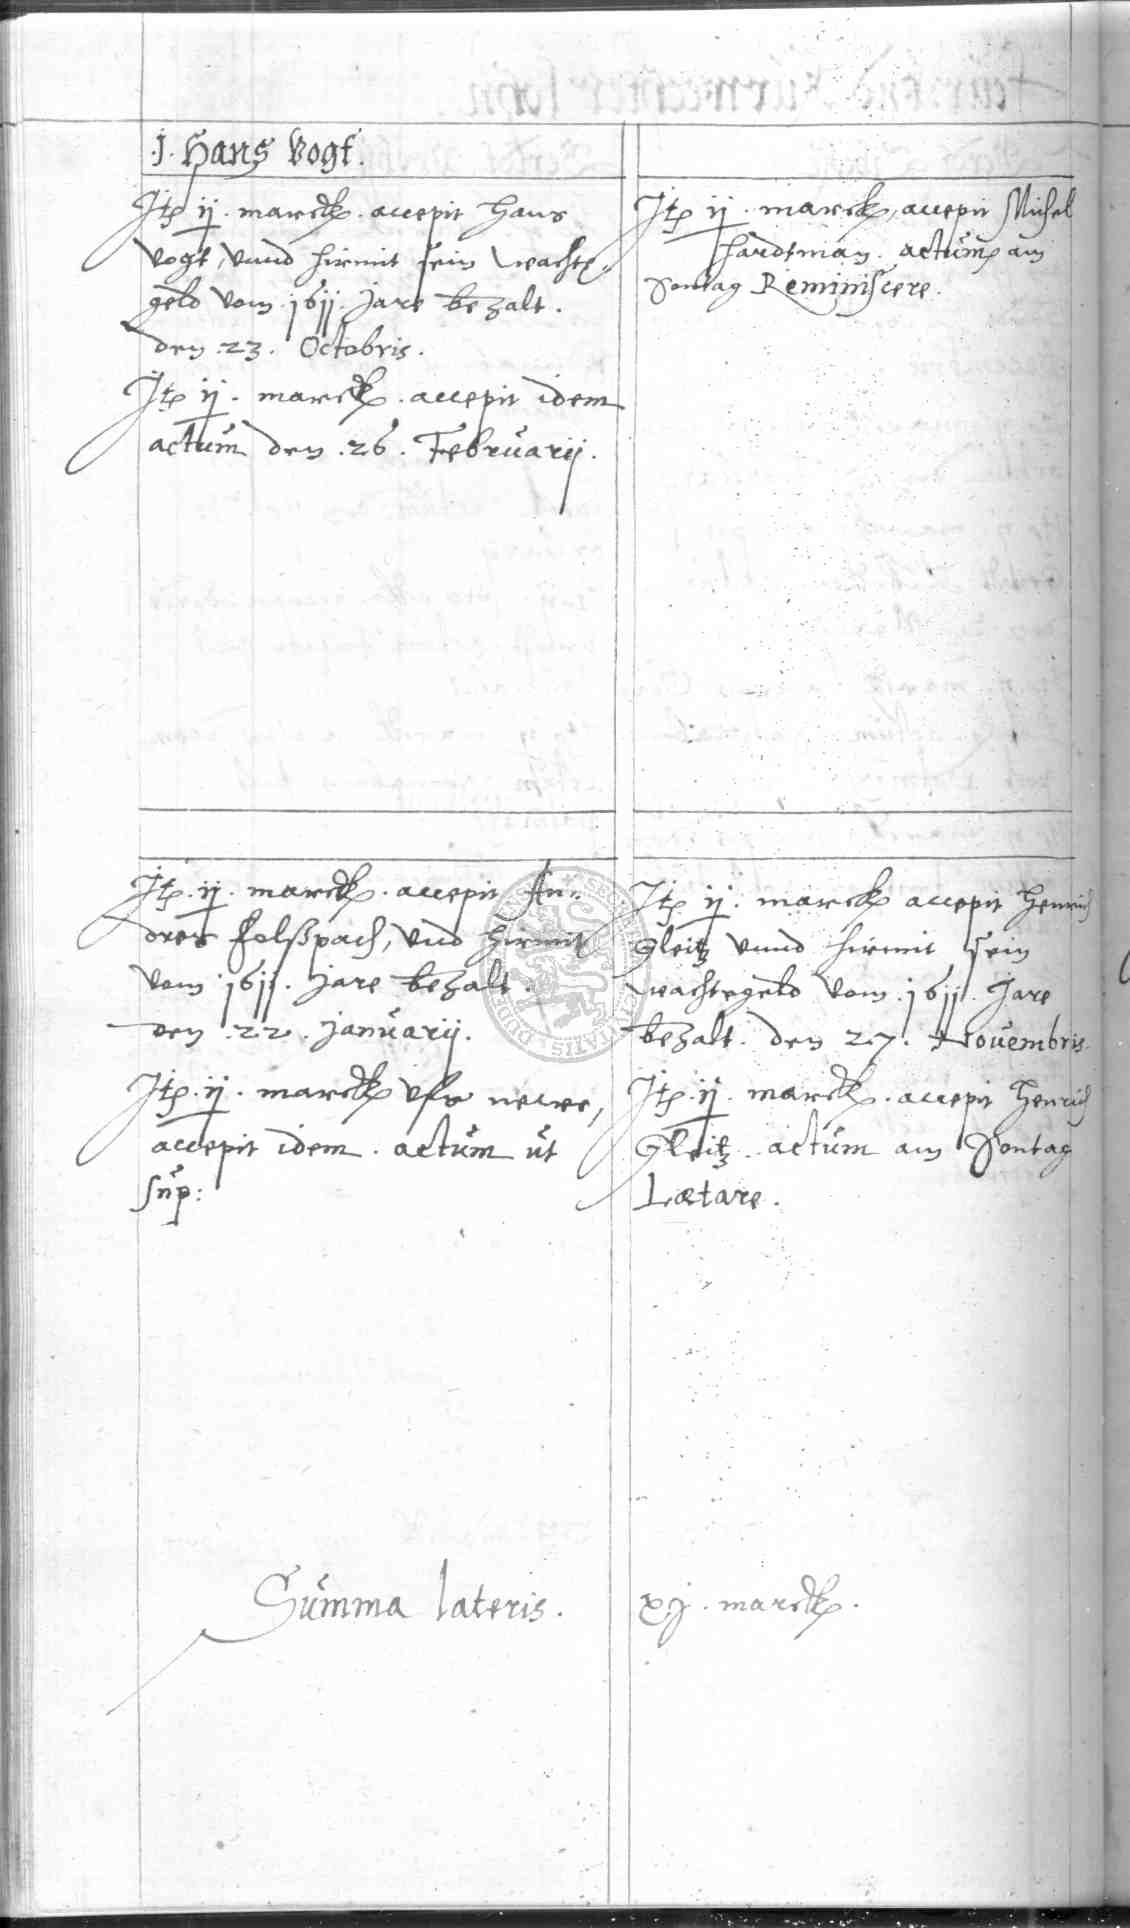 .j. Hans Vogt.
Jt ij. marck. accepit Hans
Vogt, vnnd hirmit sein wachte
geld vom 1611. Jare bezalt.
den .23. Octobris.
Jt ij. marck. accepit idem
actum den .26. Februarij.
Jt ij. marck, accepit Michel
Hardtman. actum am
Sontag Reminiscere.
Jt. ij. marck. accepit An-
dres Folßpach, vnd hirmit
vom 1611. Jare bezalt.
den .22. Januarij.
Jt. ij. marck vfs newe,
accepit idem. actum ut
sup:
Jt ij. marck accepit Henrich
Gleitz vnnd hirmit sein
wachtegeld vom .1611. Jare
bezalt. den 27. Novembris.
Jt. ij. marck. accepit Henrich
Gleitz. actum am Sontag
Lætare.
Summa lateris. xij. marck.